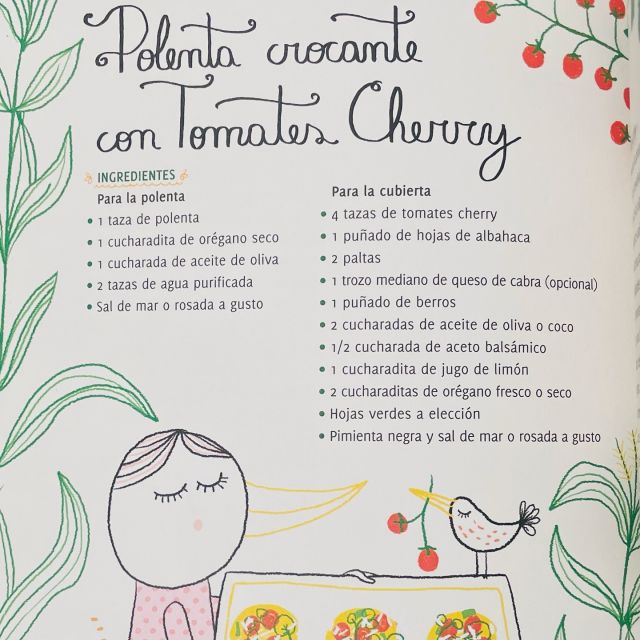 Polenta crocante
con Tomates Cherry
INGREDIENTES
Para la polenta
• 1 taza de polenta
• 1 cucharadita de orégano seco
• 1 cucharada de aceite de oliva
• 2 tazas de agua purificada
• Sal de mar o rosada a gusto
Para la cubierta
• 4 tazas de tomates cherry
• 1 puñado de hojas de albahaca
• 2 paltas
• 1 trozo mediano de queso de cabra (opcional)
• 1 puñado de berros
• 2 cucharadas de aceite de oliva o coco
• 1/2 cucharada de aceto balsámico
• 1 cucharadita de jugo de limón
• 2 cucharaditas de orégano fresco o seco
• Hojas verdes a elección
• Pimienta negra y sal de mar o rosada a gusto